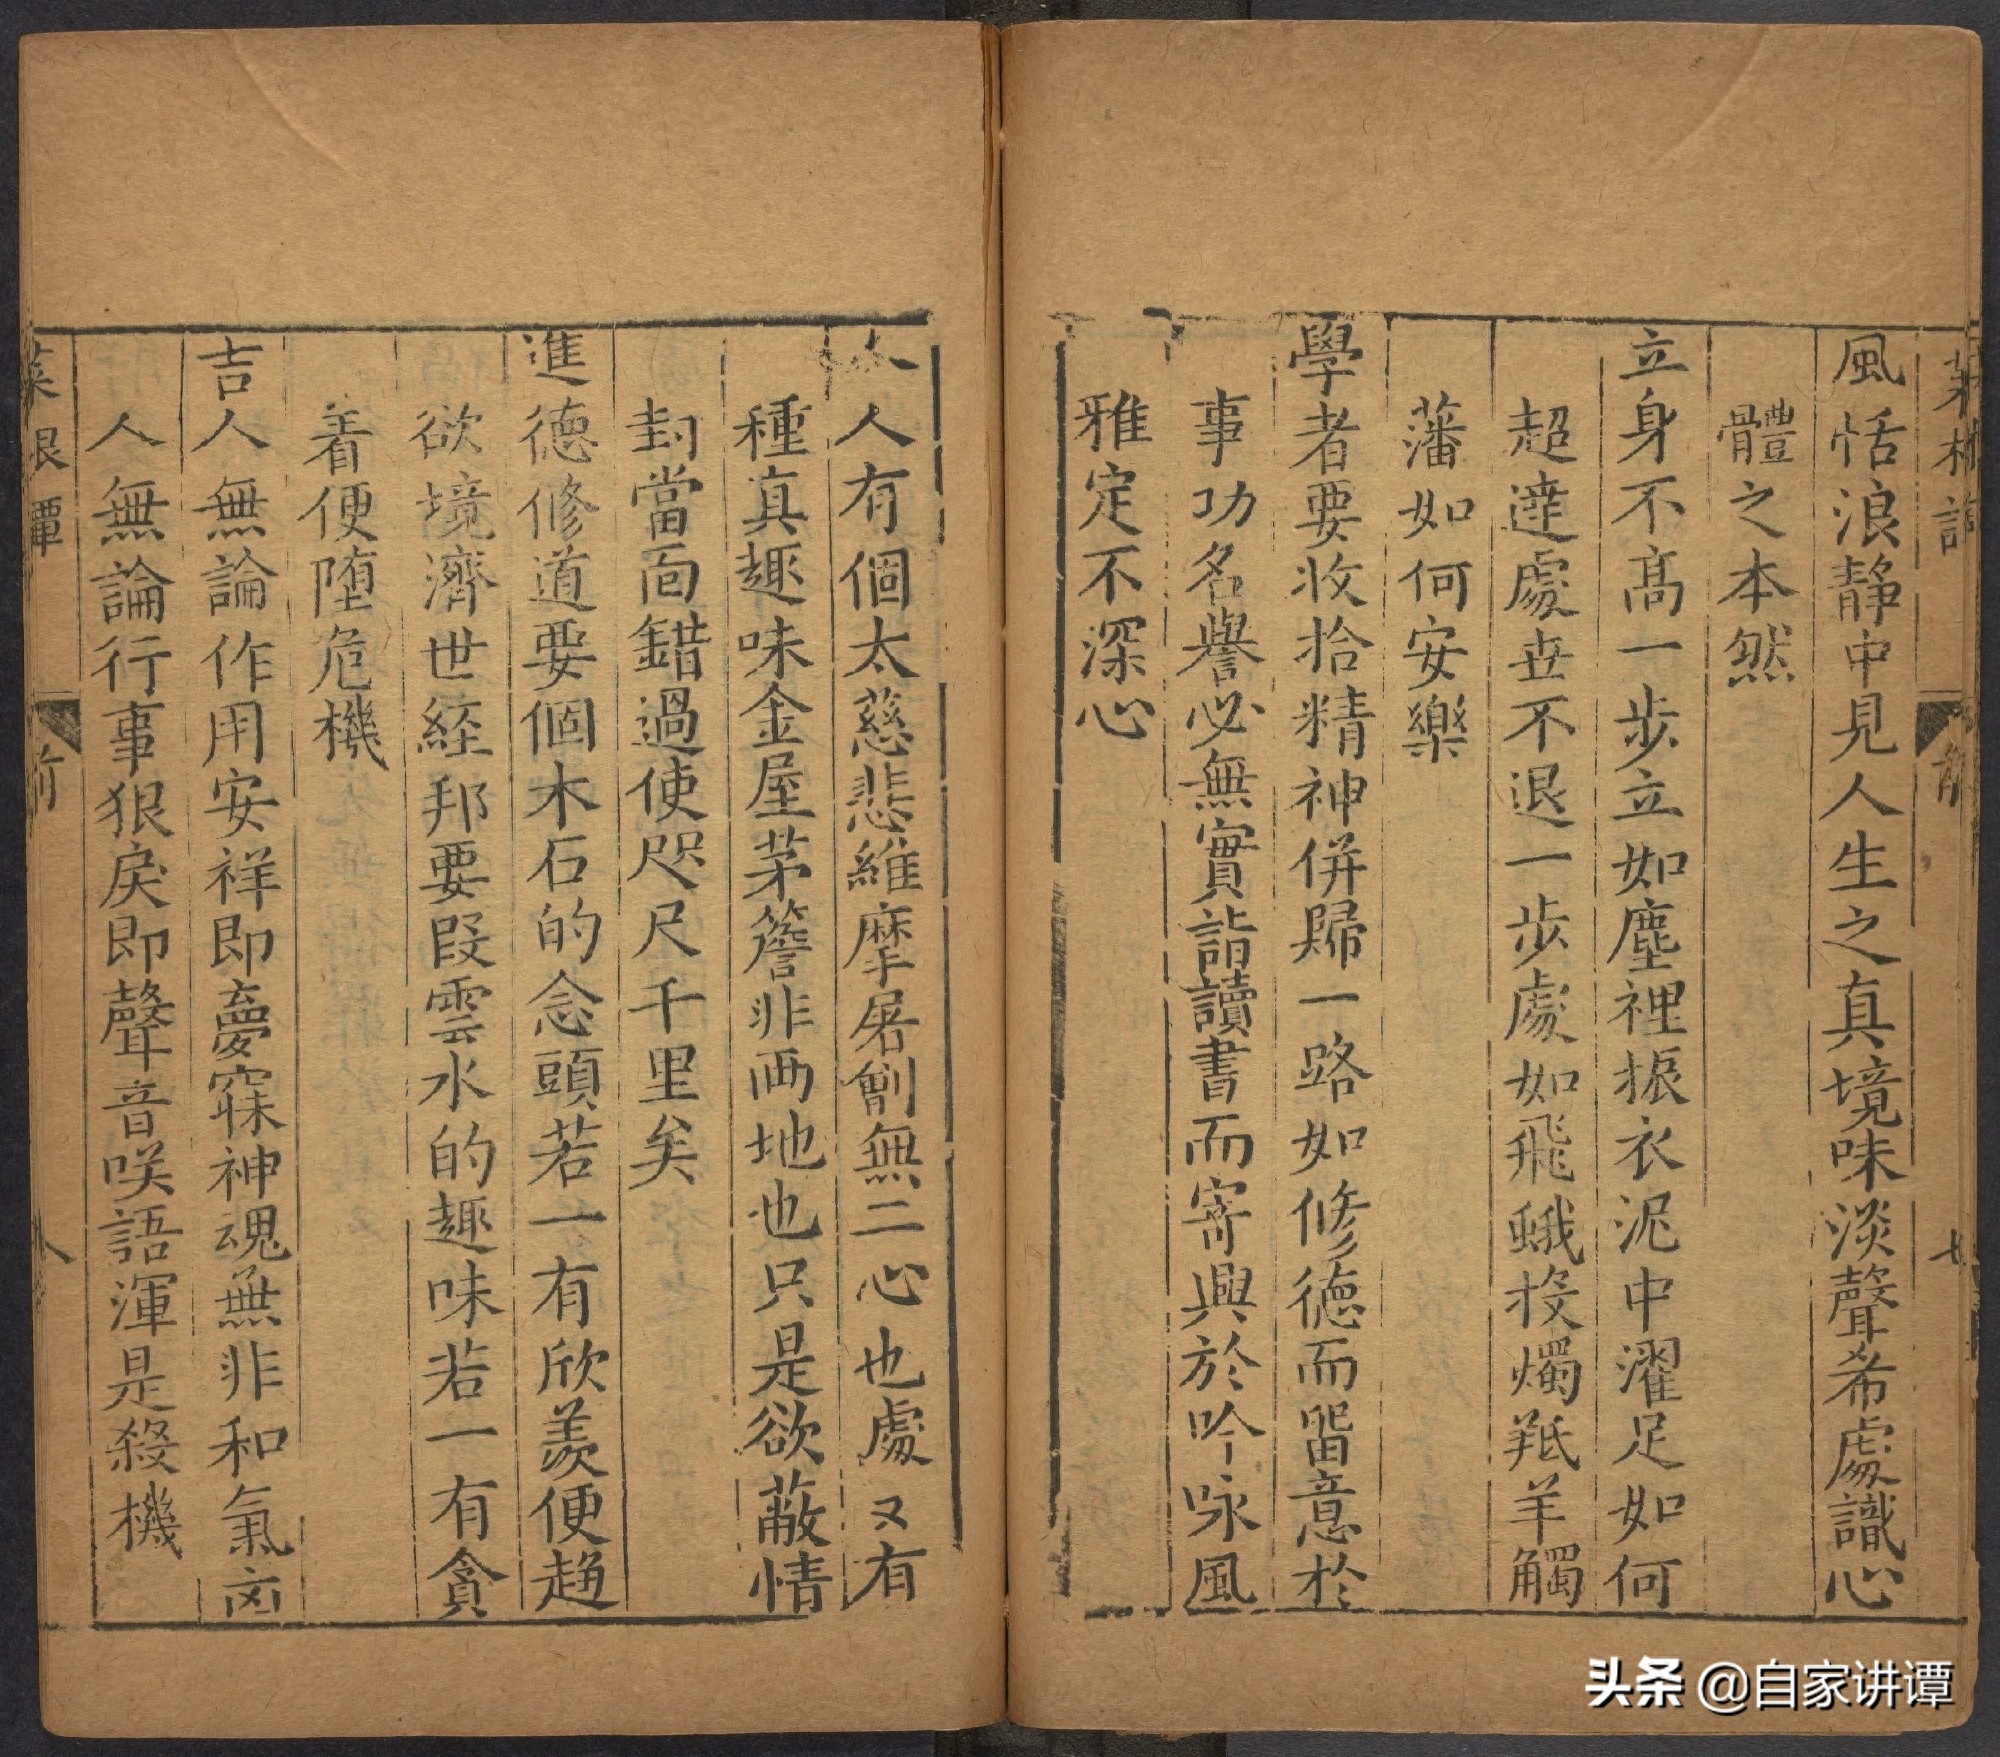 風恬浪靜中見人生之真境味淡聲希處識心
體之本然
立身不髙一步立如塵裡振衣泥中濯足如何
超達處世不退一步處如飛蛾投燭羝羊觸
藩如何安樂
學者要收拾精神併歸一路如修德而畱意於
事功名譽必無實詣讀書而寄興於吟咏風
雅定不深心
人人有個太慈悲維摩屠劊無二心也處又有
種真趣味金屋茅簷非兩地也只是欲蔽情
封當面錯過使咫尺千里矣
進德修道要個木石的念頭若一有欣羨便趋
欲境濟世経邦要叚雲水的趣味若一有貪
着便堕危機
吉人無論作用安祥即夢寐神魂無非和氣凶
人無論行事狠戾即聲音咲語渾是殺機
菜根譚
前
八
头条 @自家讲谭